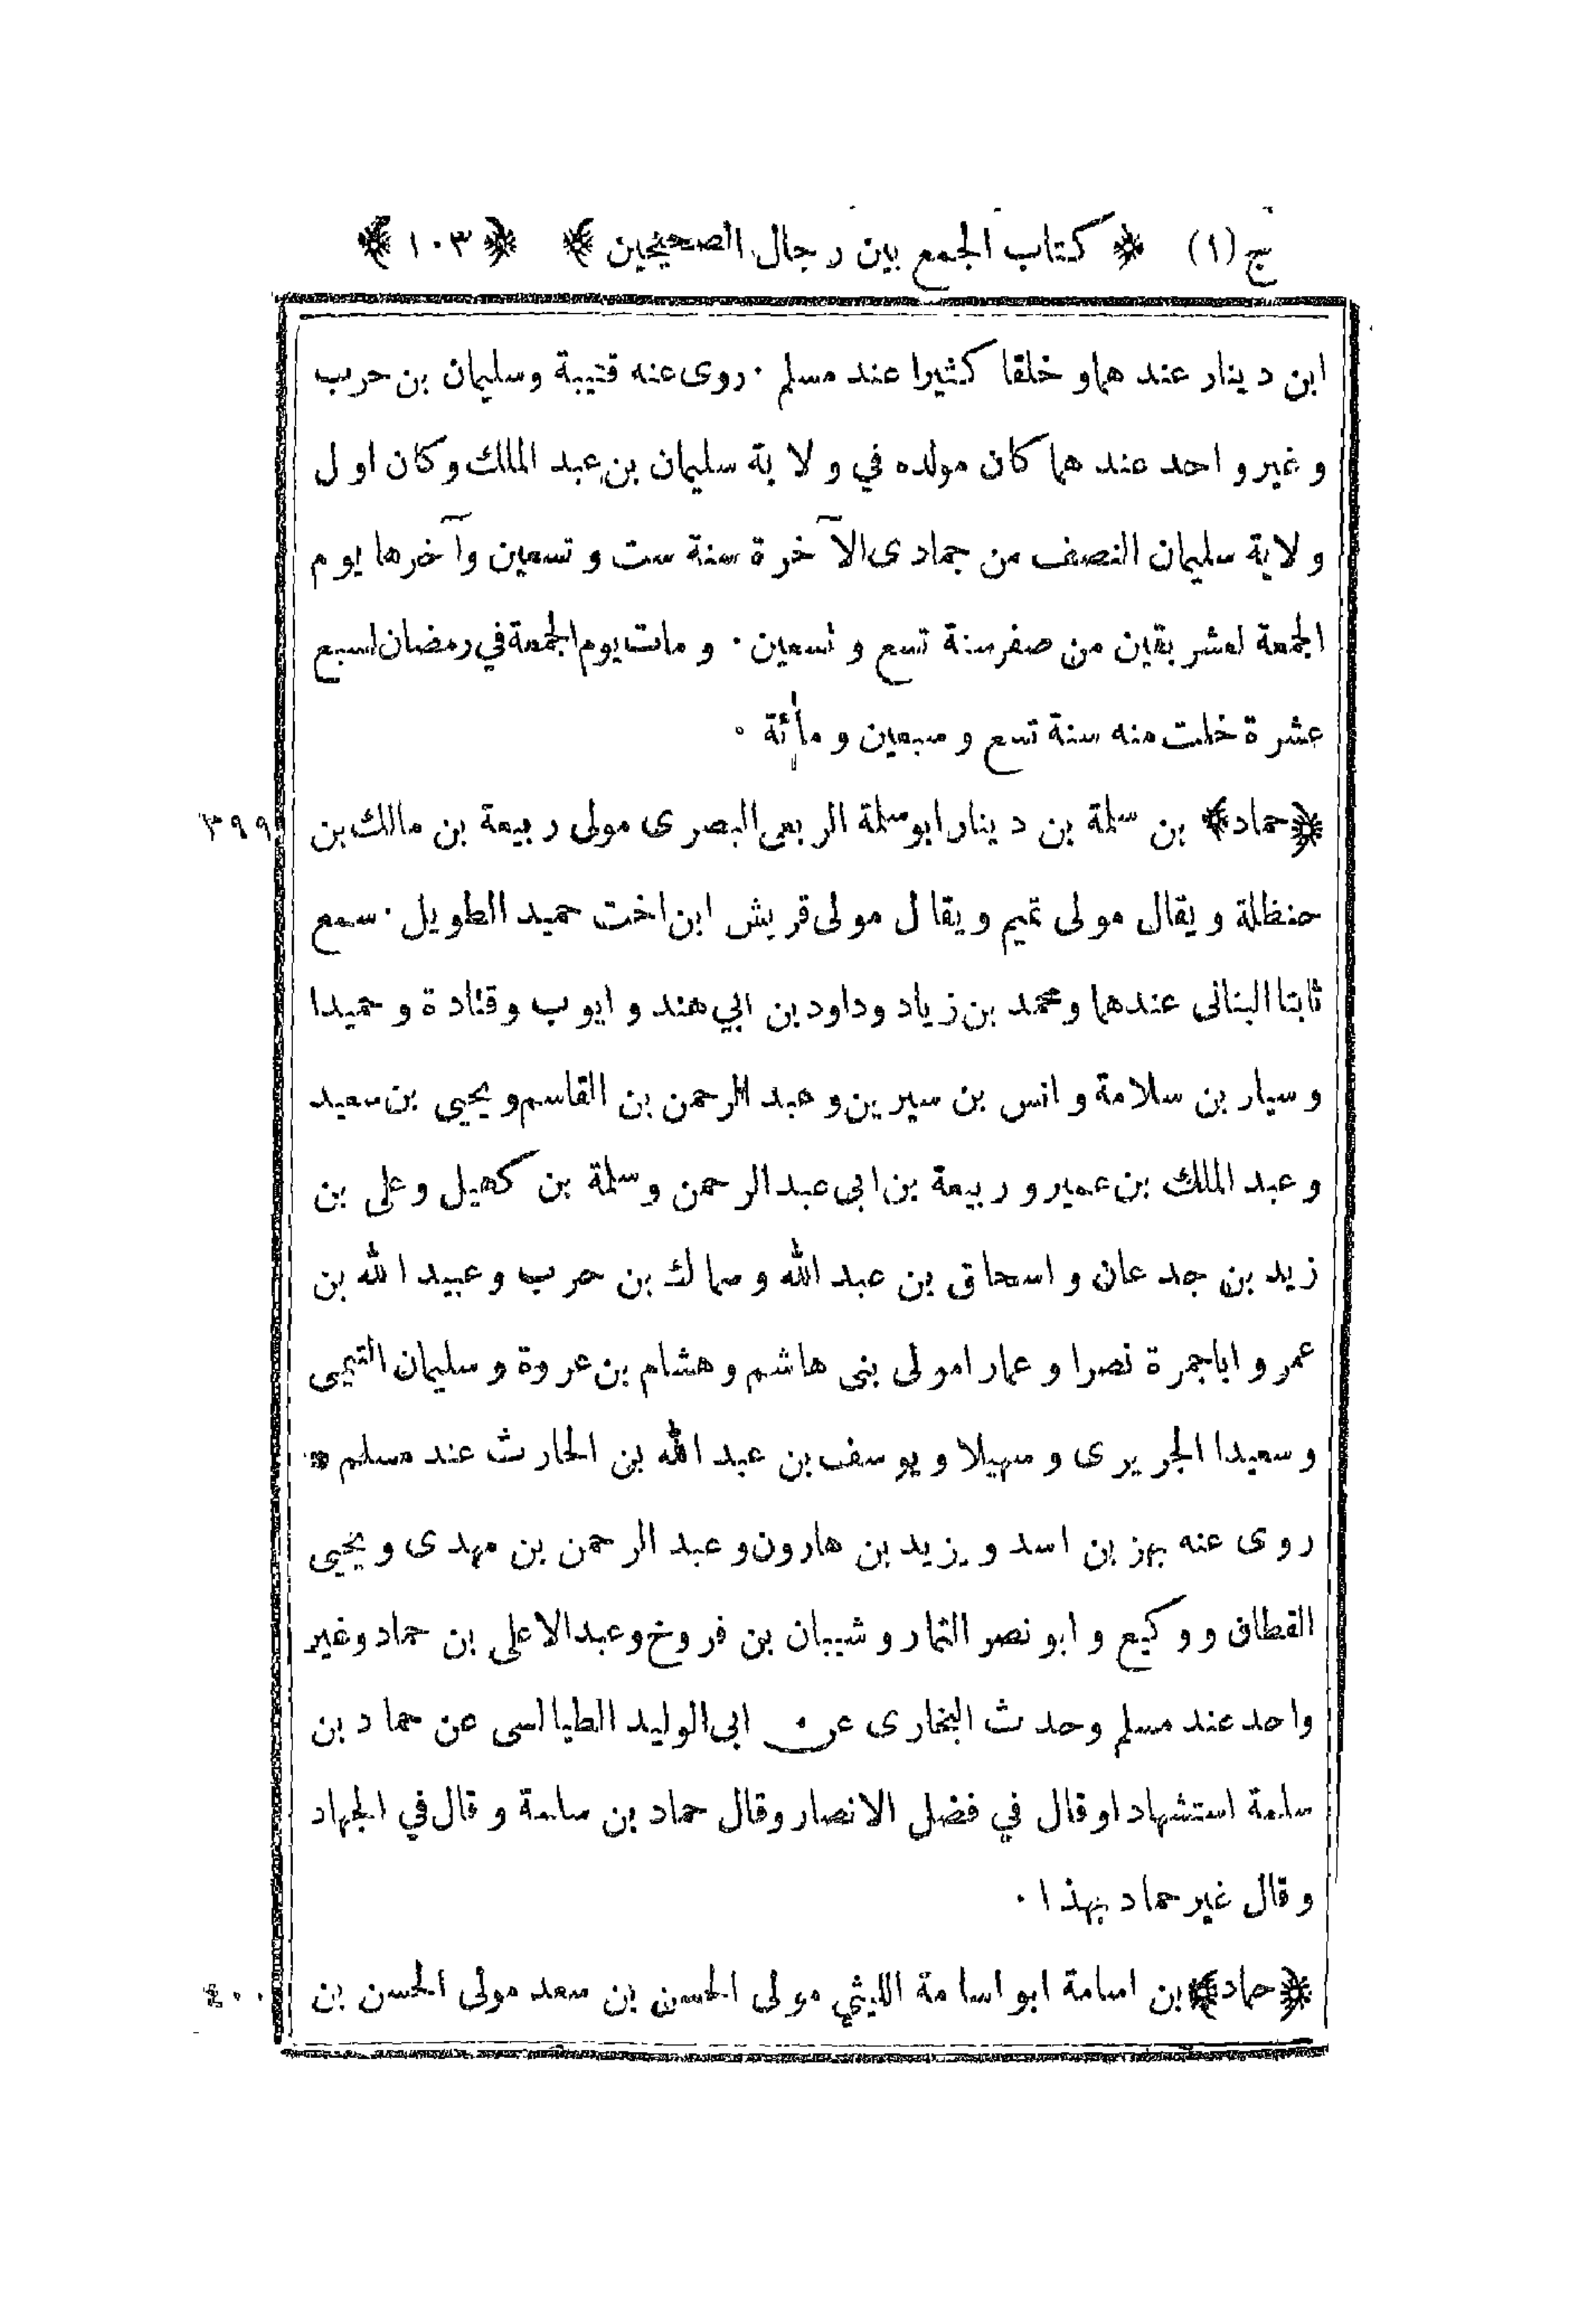 ج (١) ﴿ كتاب الجمع بين رجال الصحيحين ﴾ ﴿ ١٠٣ ﴾
ابن دينار عندهما و خلقا كثيرا عند مسلم · روى عنه قتيبة وسليمان بن حرب
و غير واحد عندهما كان مولده في ولاية سليمان بن عبد الملك وكان اول
ولاية سليمان النصف من جمادى الآخرة سنة ست و تسعين وآخرها يوم
الجمعة لعشر بقين من صفر سنة تسع و تسعين · و مات يوم الجمعة في رمضان لسبع
عشرة خلت منه سنة تسع و سبعين و مأئة ·
٣٩٩ ﴿حماد﴾ بن سلمة بن دينار ابوسلمة الربعى البصرى مولى ربيعة بن مالك بن
حنظلة و يقال مولى تميم و يقال مولى قريش ابن اخت حميد الطويل · سمع
ثابتا البنانى عندهما و محمد بن زياد وداود بن ابي هند و ايوب و قتادة و حميدا
و سيار بن سلامة و انس بن سيرين و عبد الرحمن بن القاسم و يحيى بن سعيد
و عبد الملك بن عمير و ربيعة بن ابى عبد الرحمن و سلمة بن كهيل و على بن
زيد بن جدعان و اسحاق بن عبد الله و سماك بن حرب و عبيد الله بن
عمر و اباجمرة نصرا و عمارا مولى بنى هاشم و هشام بن عروة و سليمان التيمى
و سعيدا الجريرى و سهيلا و يوسف بن عبد الله بن الحارث عند مسلم ·
روى عنه بهز بن اسد و يزيد بن هارون و عبد الرحمن بن مهدى و يحيى
القطان و وكيع و ابو نصر التمار و شيبان بن فروخ و عبد الاعلى بن حماد وغير
واحد عند مسلم وحدث البخارى عن ابى الوليد الطيالسى عن حماد بن
سلمة استشهادا وقال في فضل الانصار وقال حماد بن سلمة و قال في الجهاد
و قال غير حماد بهذا ·
٤٠٠ ﴿حماد﴾ بن اسامة ابو اسامة الليثي مولى الحسن بن سعد مولى الحسن بن